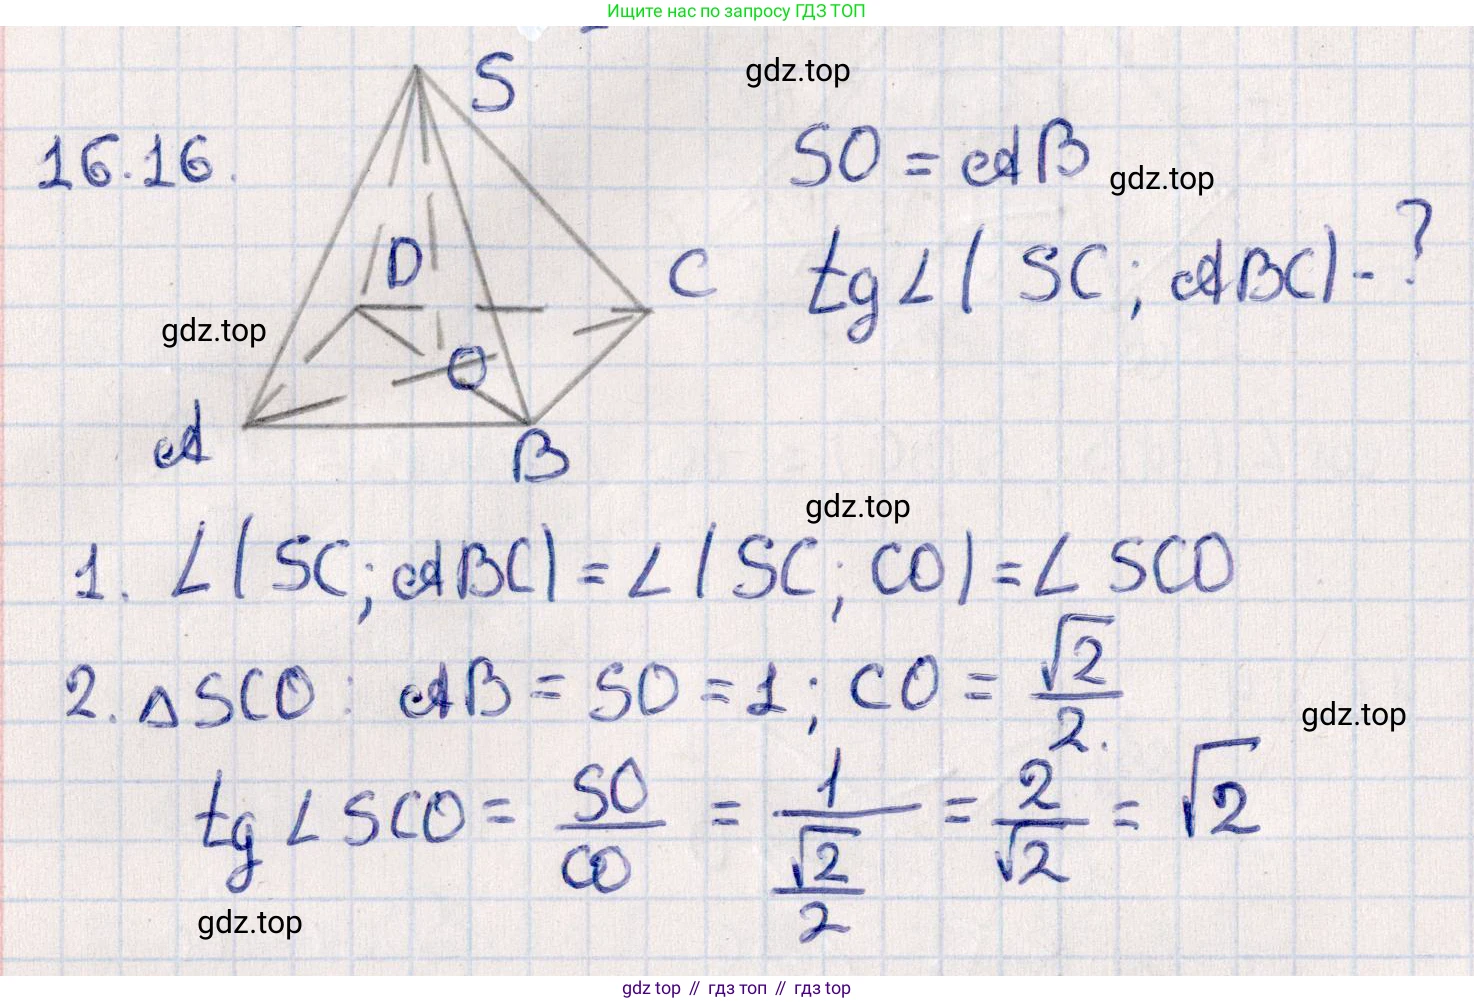 Ищите нас по запросу ГДЗ ТОП
S
gdz.top
16.16.
SO = AB
gdz.top
D
C
tg∠(SC; ABC) - ?
gdz.top
O
A
B
gdz.top
1. ∠(SC; ABC) = ∠(SC; CO) = ∠SCO
2. △SCO: AB = SO = 1; CO = √2/2.
gdz.top
tg∠SCO = SO/CO = 1/(√2/2) = 2/√2 = √2
gdz.top
gdz top // гдз топ // gdz top